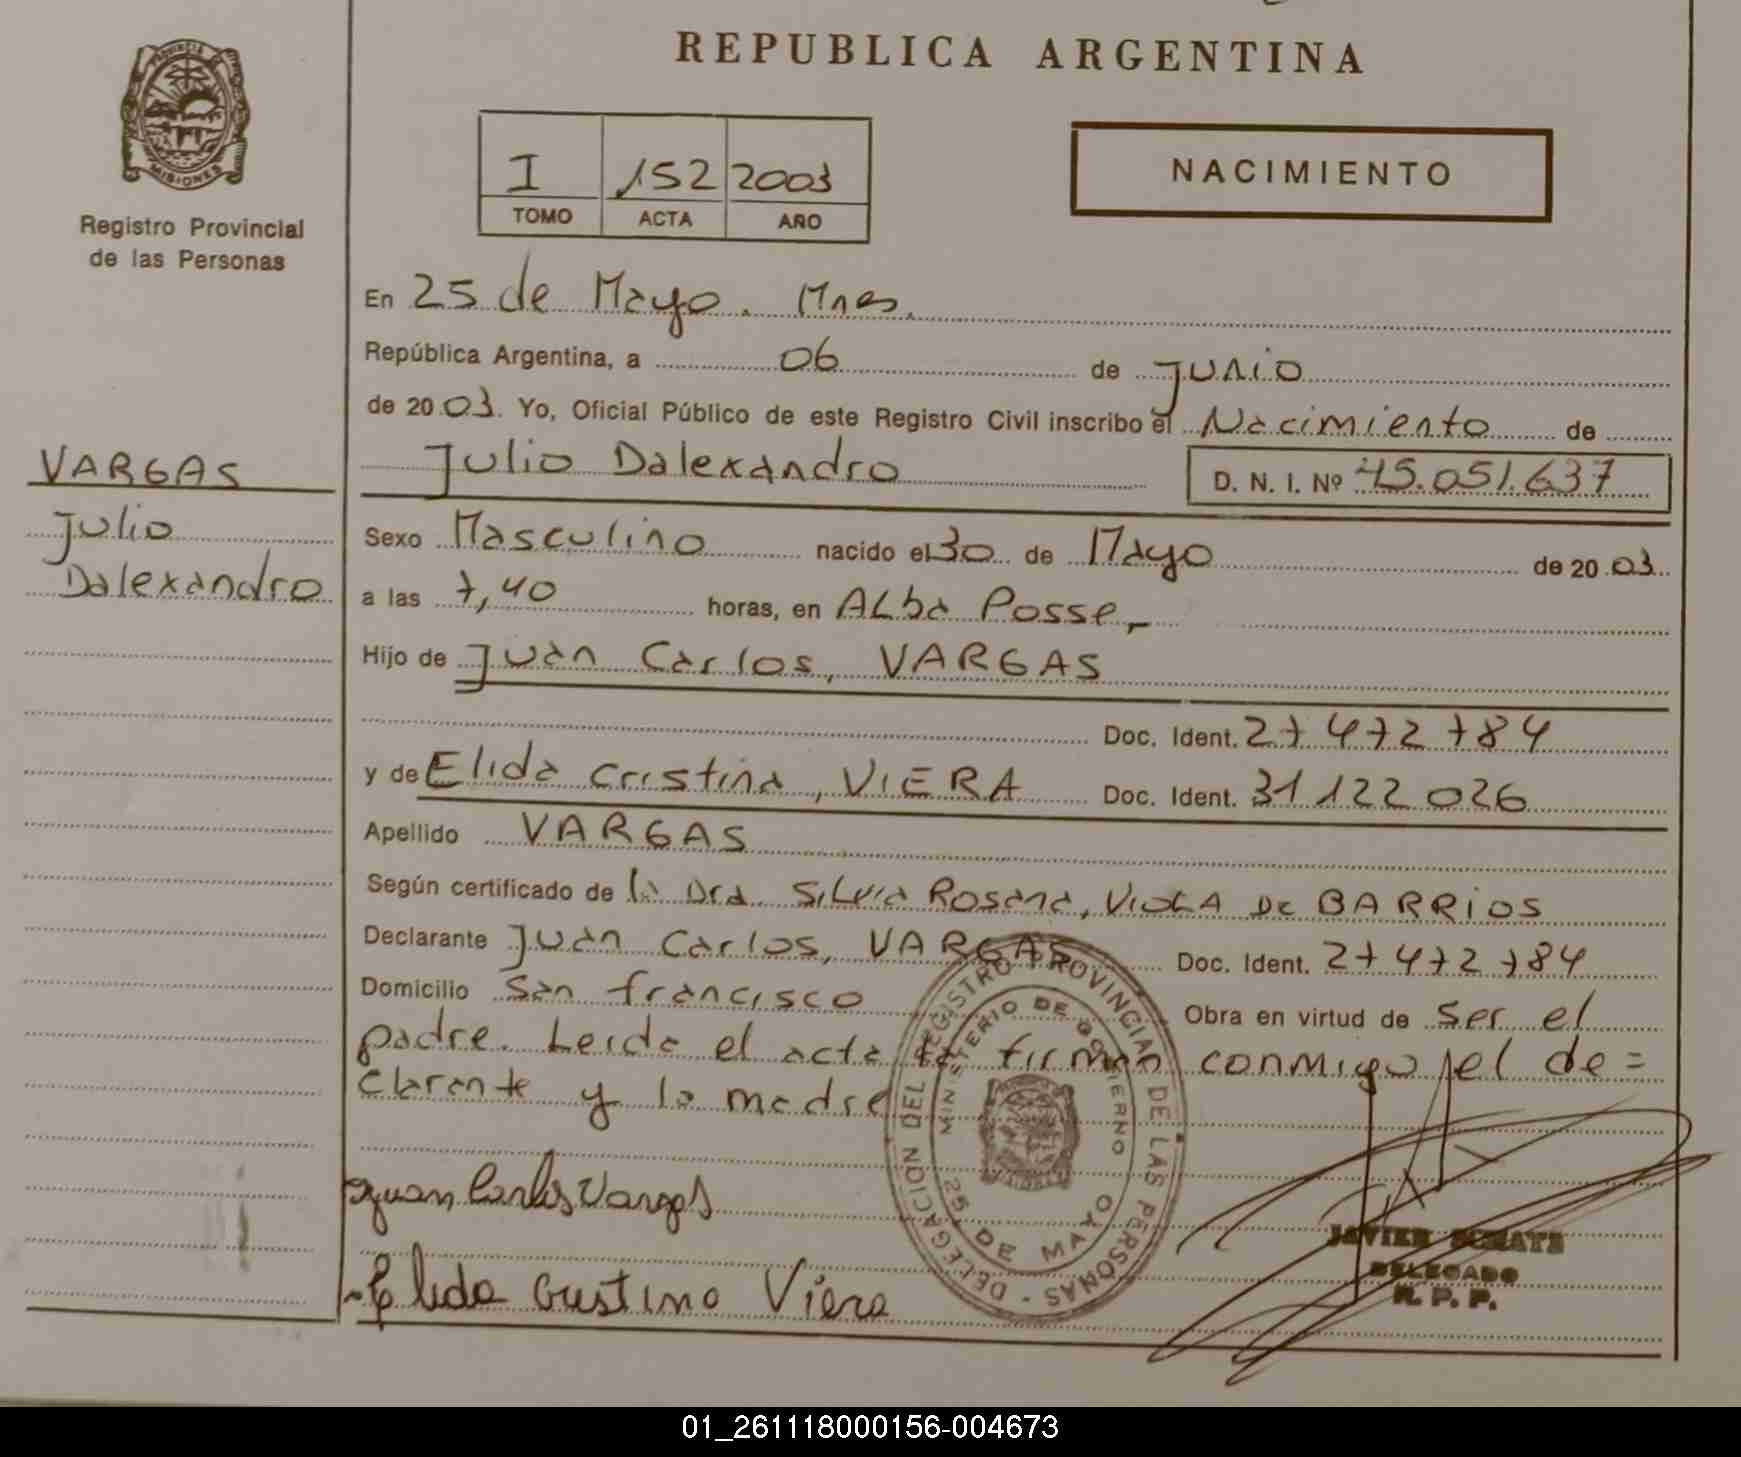 REPUBLICA ARGENTINA
PROVINCIA DE
MISIONES
Registro Provincial
de las Personas
I 152 2003
TOMO ACTA AÑO
NACIMIENTO
En 25 de Mayo. Mnes.
República Argentina, a 06 de junio
de 2003. Yo, Oficial Público de este Registro Civil inscribo el Nacimiento de
Julio Dalexandro D. N. I. Nº 45.051.637
VARGAS
Julio
Dalexandro
Sexo Masculino nacido el 30 de Mayo de 2003
a las 7,40 horas, en ALba Posse,
Hijo de Juan Carlos, VARGAS
Doc. Ident. 27 472 784
y de Elida Cristina, VIERA Doc. Ident. 31 122 026
Apellido VARGAS
Según certificado de la Dra. Silvia Rosana, VIOLA De BARRIOS
Declarante Juan Carlos, VARGAS Doc. Ident. 27 472 784
Domicilio San francisco Obra en virtud de ser el
padre. Leida el acta la firman conmigo el de=
clarante y la madre
DELEGACION DEL REGISTRO PROVINCIAL DE LAS PERSONAS -
MINISTERIO DE GOBIERNO
25 DE MAYO
Juan Carlos Vargas
Elida Cristina Viera
JAVIER
DELEGADO
R. P. P.
01_261118000156-004673